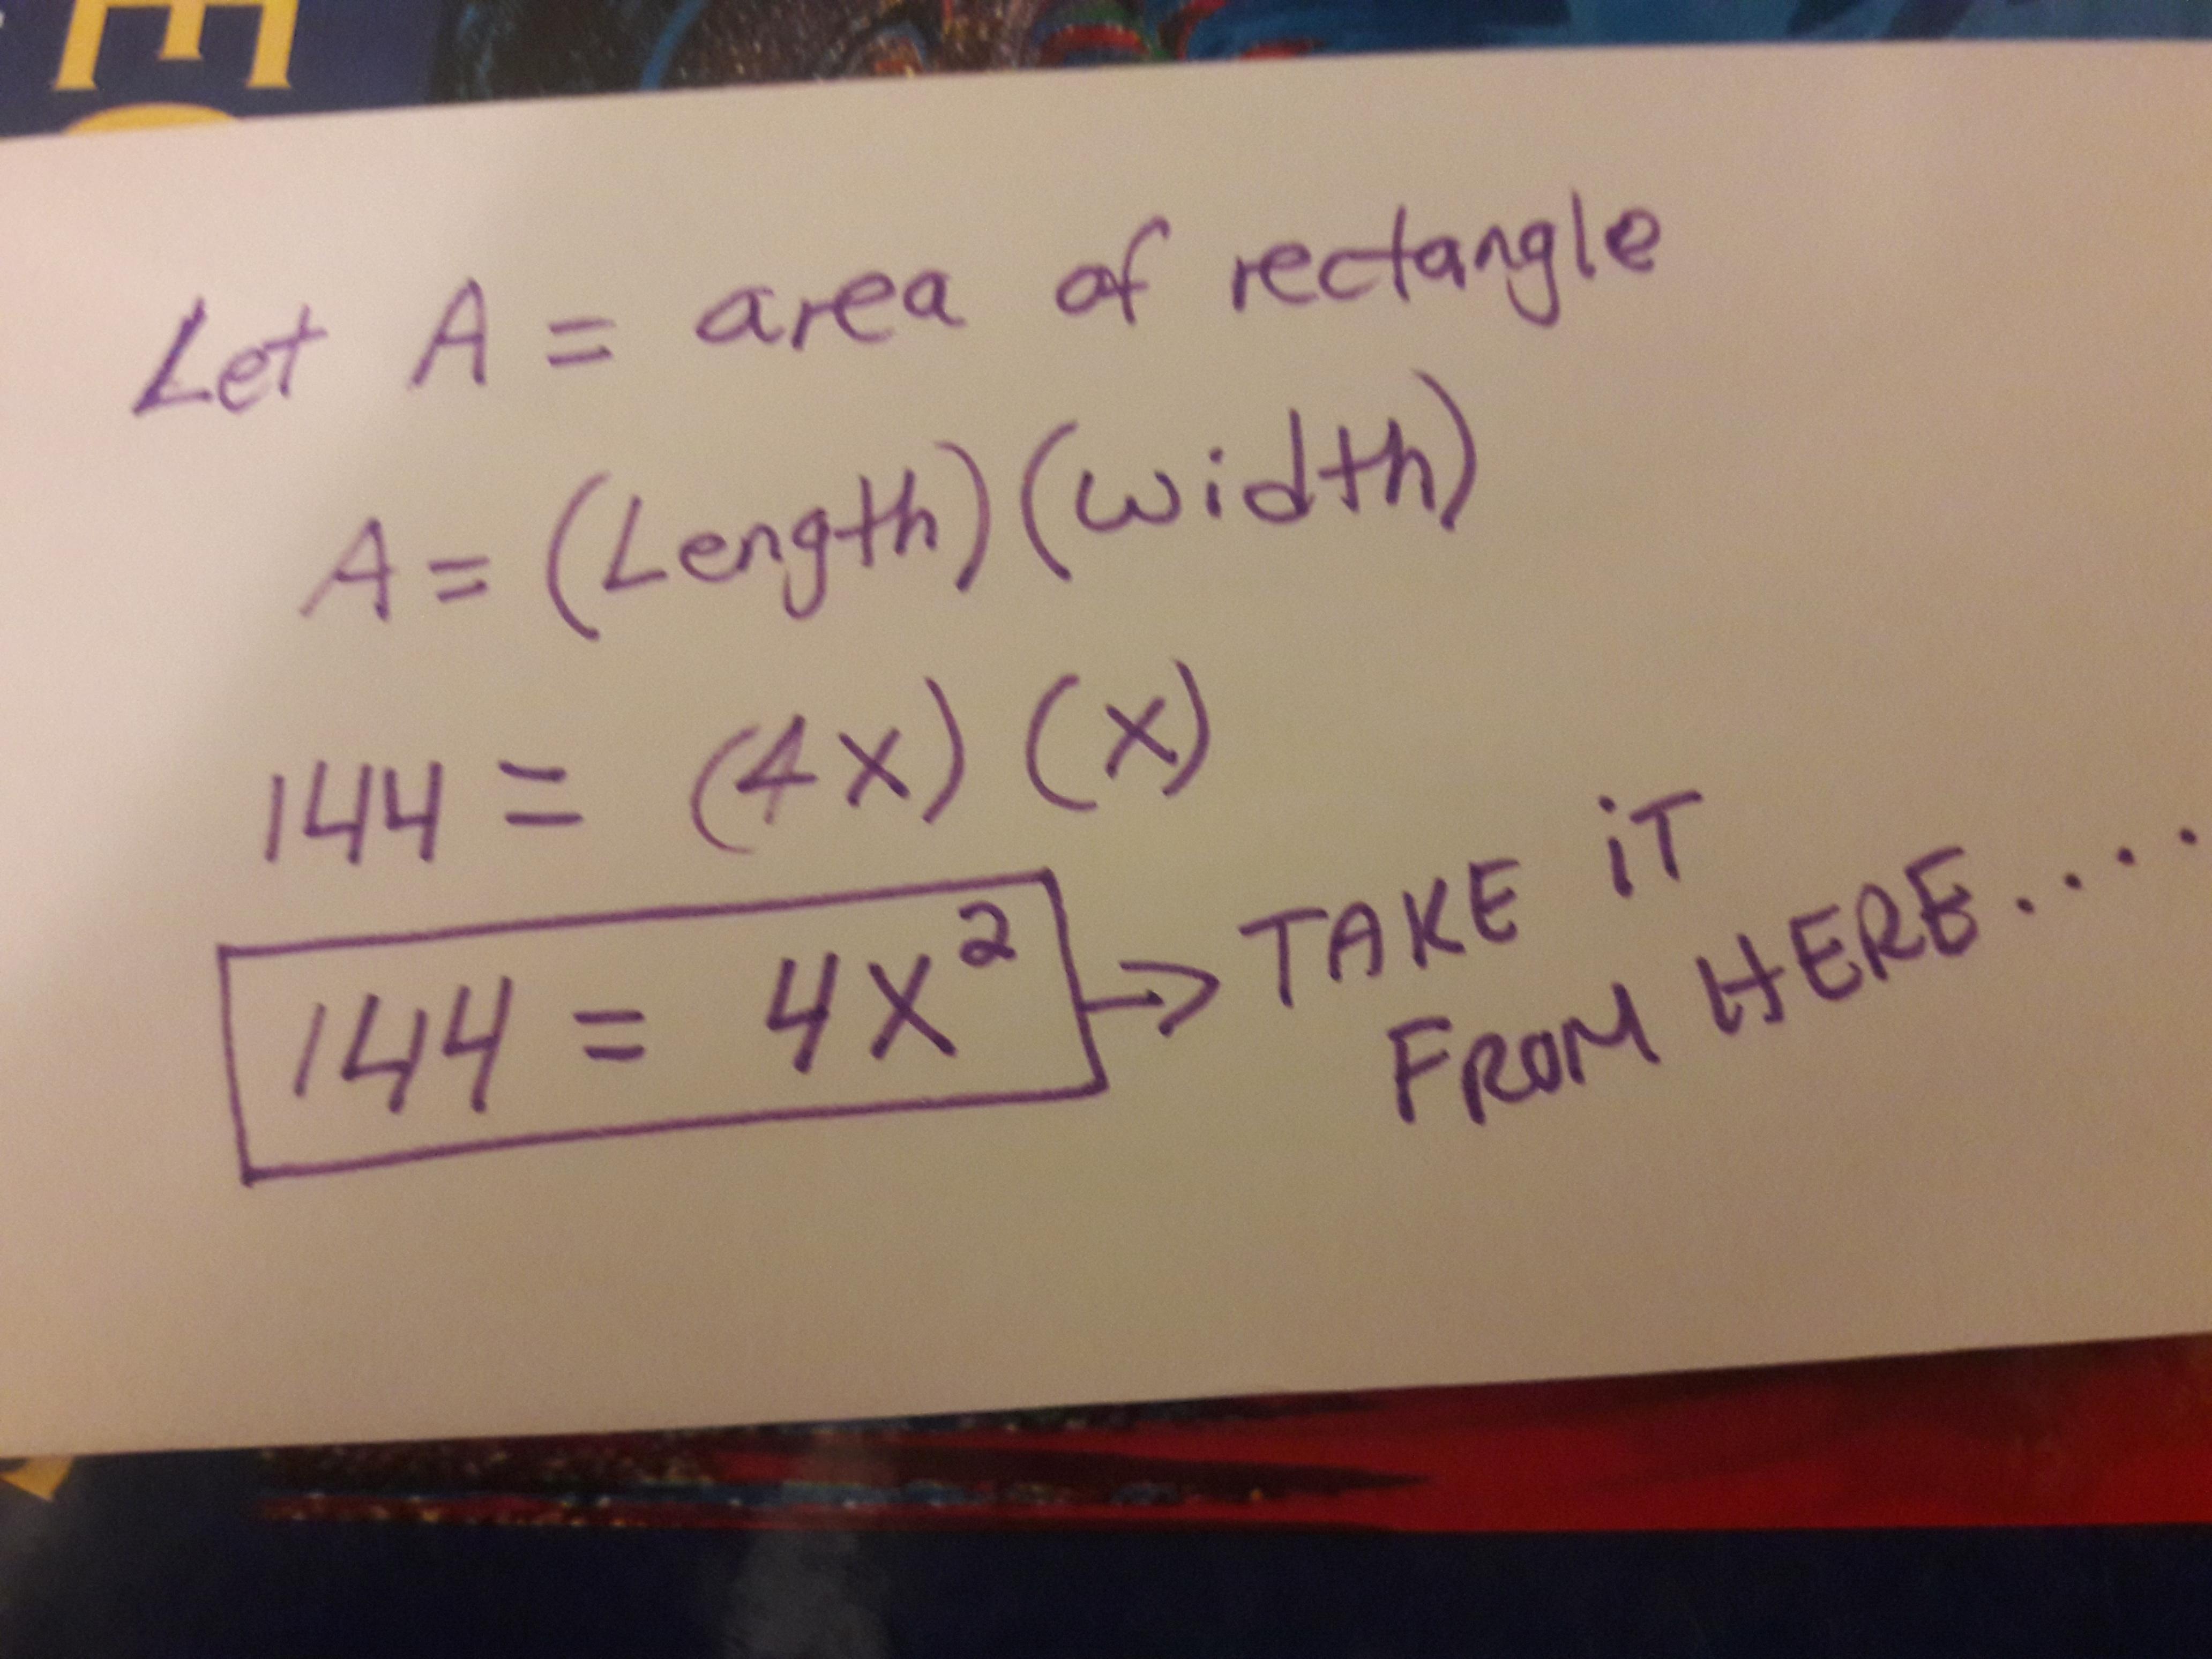 E
Let A = area of rectangle
A = (Length)(width)
144 = (4x) (x)
144 = 4x²
TAKE iT
FROM HERE....